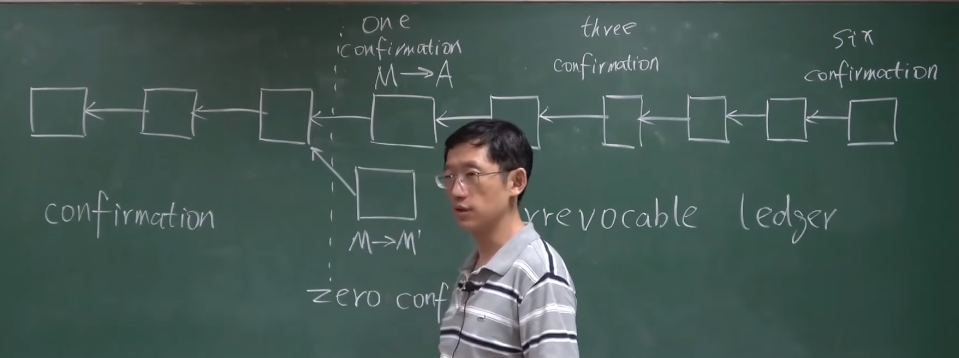 one
confirmation
M→A
three
confirmation
six
confirmation
confirmation
M→M'
rrevocable ledger
zero conf